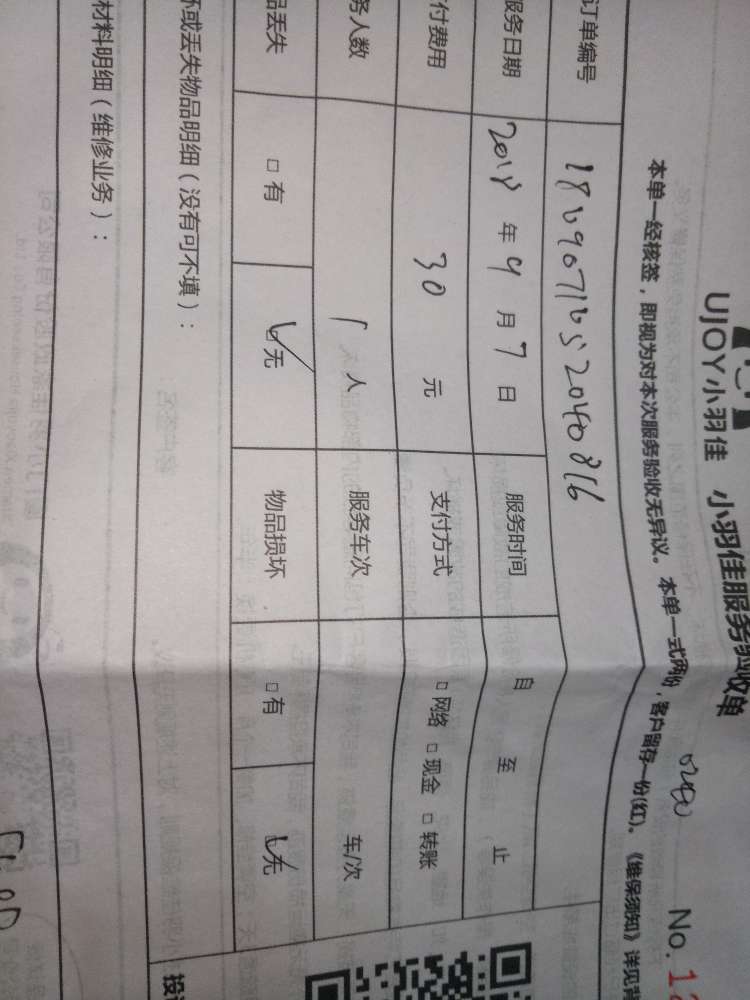 UJOY小羽佳 小羽佳服务验收单
No.1
本单一经核签，即视为对本次服务验收无异议。本单一式两份，客户留存一份(红)。《维保须知》详见背
订单编号
服务日期 2018 年 9 月 7 日 服务时间 自 至 止
付费用 30 元 支付方式 □ 网络 □ 现金 □ 转账
务人数 1 人 服务车次 车/次
品丢失 □ 有 □ 无 物品损坏 □ 有 □ 无
坏或丢失物品明细（没有可不填）：
材料明细（维修业务）：